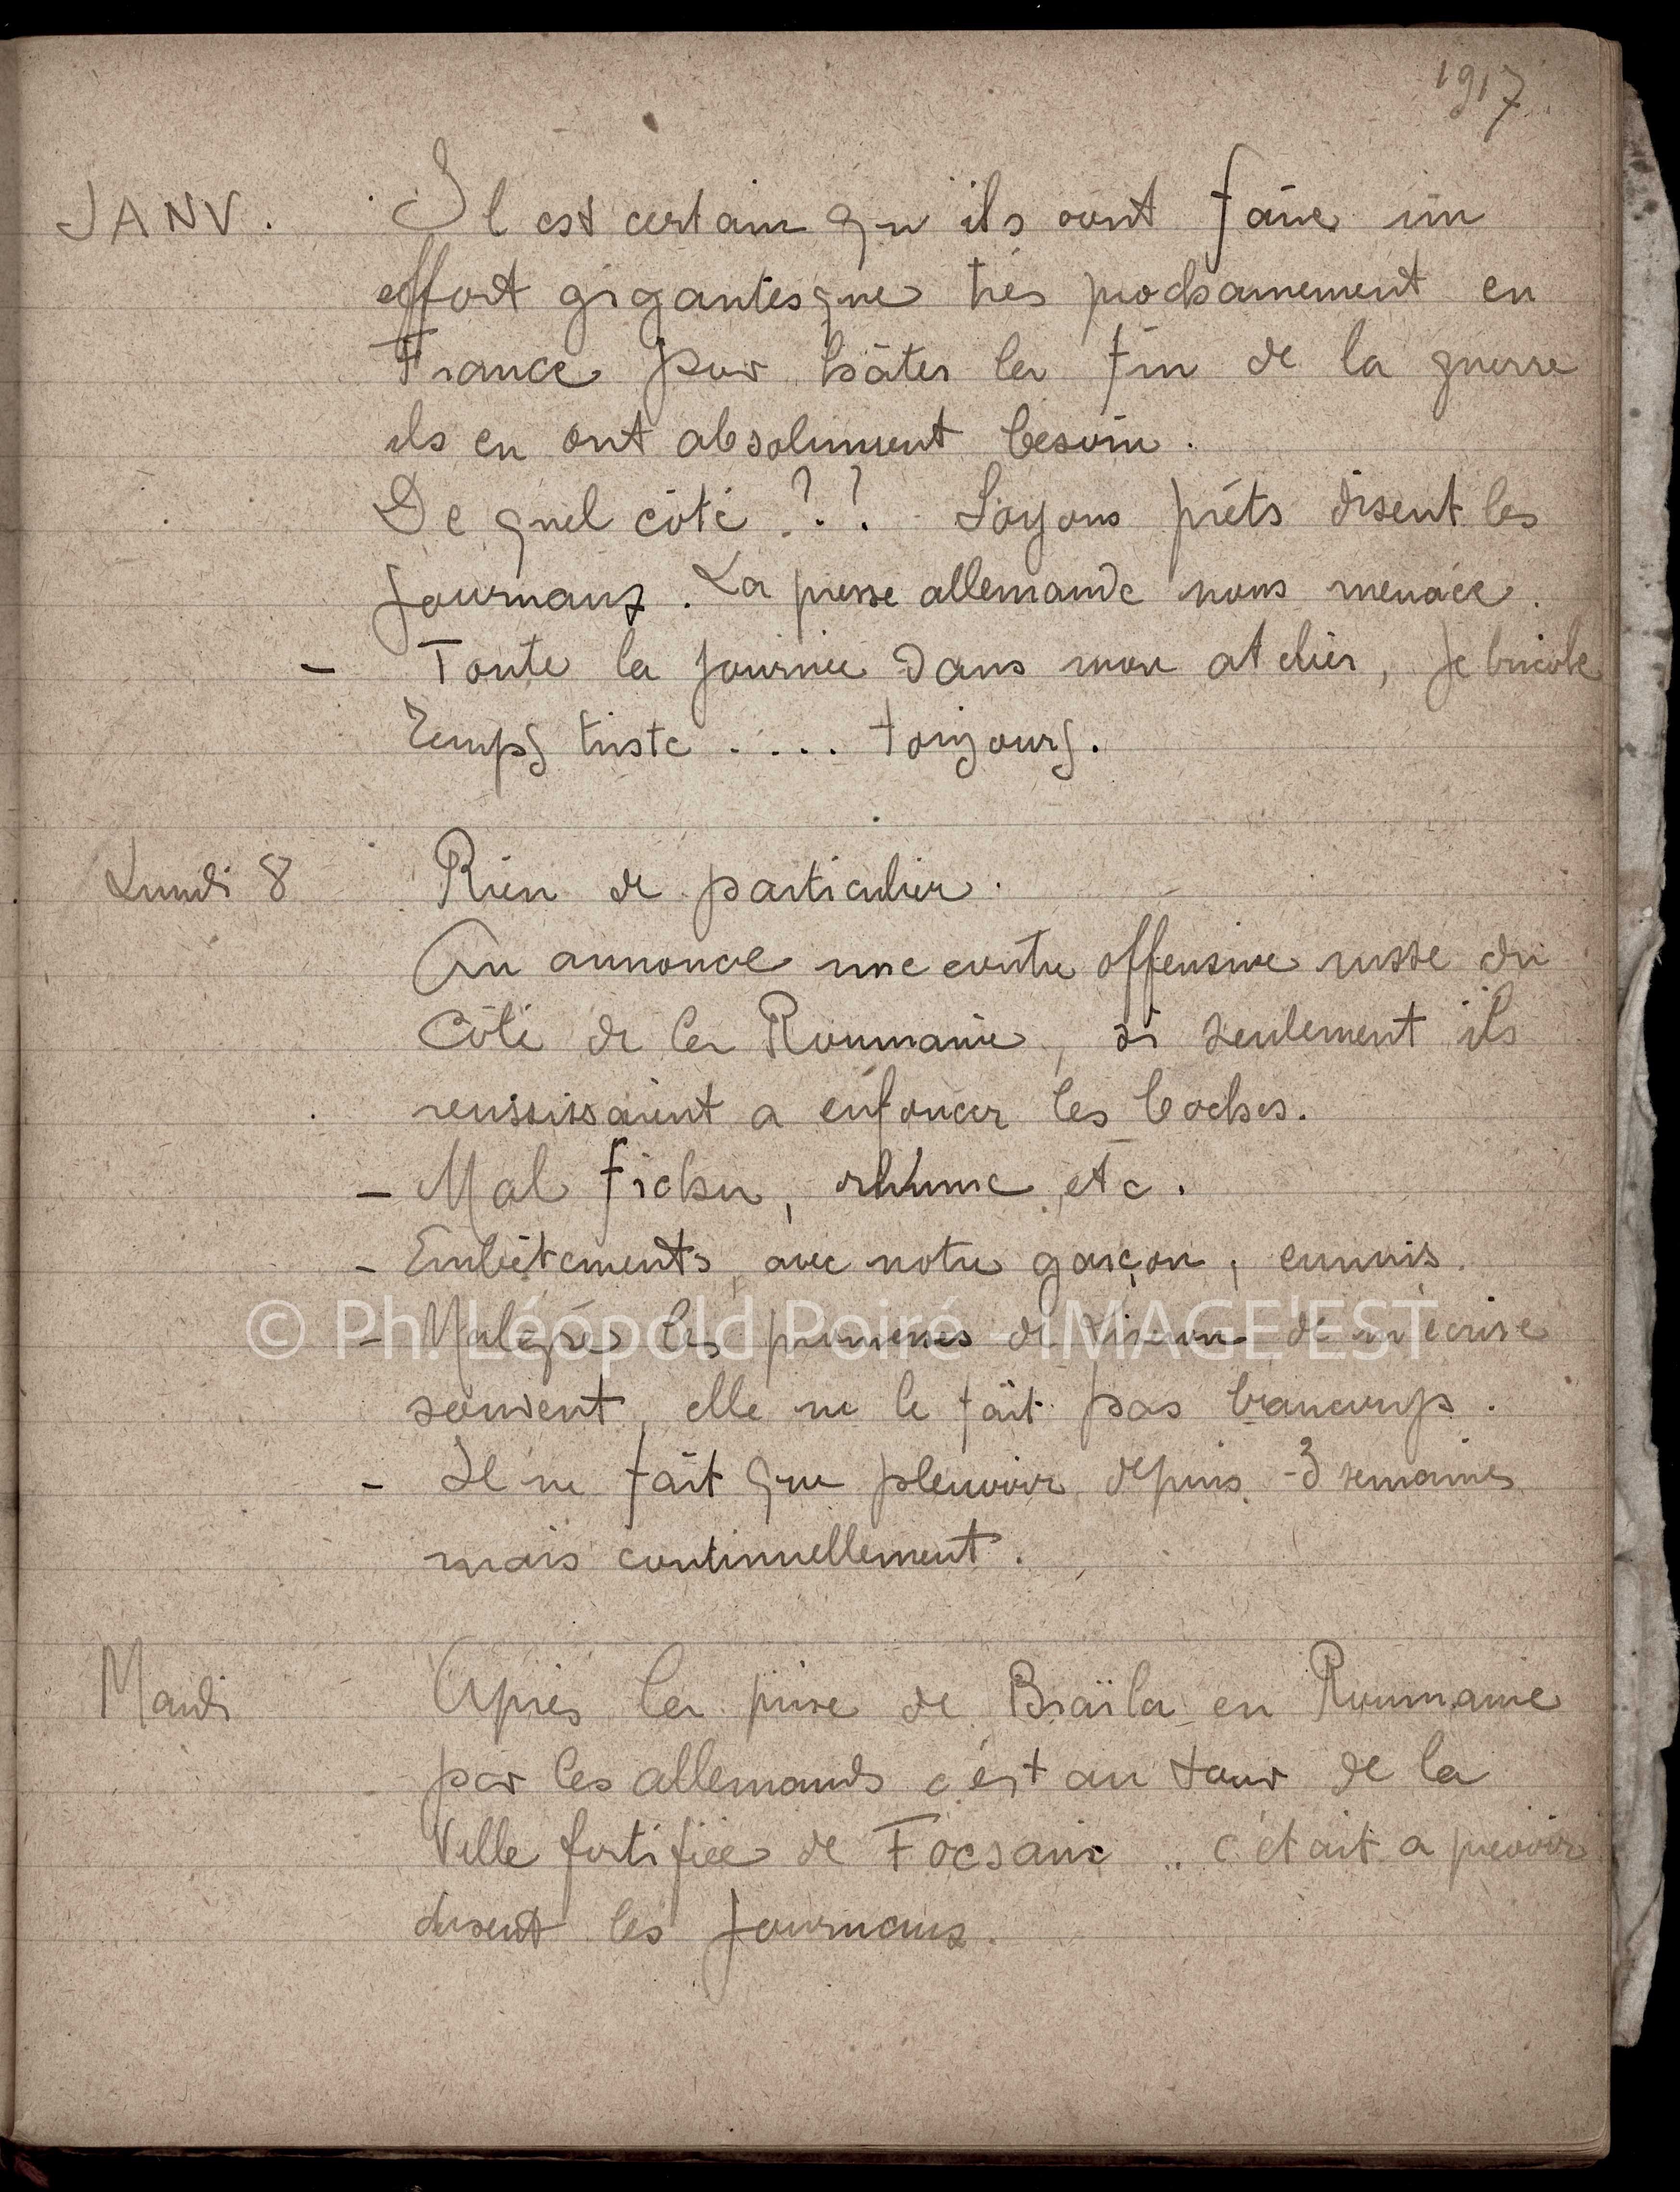 1917
JANV. Il est certain qu'ils vont faire un
effort gigantesque très prochainement en
France pour hâter la fin de la guerre
ils en ont absolument besoin.
De quel côté ?? Soyons prêts disent les
journaux. La presse allemande nous menace.
- Toute la journée dans mon atelier, je bricole
Temps triste .... toujours.
Lundi 8 Rien de particulier.
On annonce une contre offensive russe du
Côté de la Roumanie, si seulement ils
reussissaient a enfoncer les boches.
- Mal fichu, rhume etc.
- Embêtements avec notre garçon, ennuis.
© Ph. Léopold Poiré - IMAGE'EST
- Malgré les promesses de de m'écrire
souvent, elle ne le fait pas beaucoup.
- Il ne fait que pleuvoir depuis 3 semaines
mais continuellement.
Mardi Après la prise de Braïla en Roumanie
par les allemands c'est au tour de la
Ville fortifiée de Focsani .. c'était a prevoir
disent les journaux.